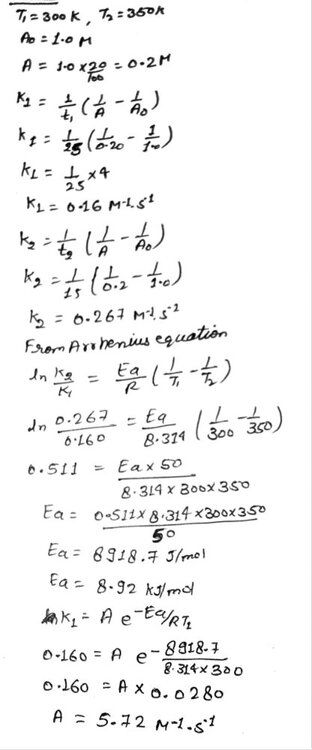 T₁=300K, T₂=350K
A₀=1.0 M
A = 1.0 × 20/100 = 0.2M
K₁ = 1/t₁ (1/A - 1/A₀)
K₁ = 1/25 (1/0.20 - 1/1.0)
K₁ = 1/25 × 4
K₁ = 0.16 M⁻¹.s⁻¹
K₂ = 1/t₂ (1/A - 1/A₀)
K₂ = 1/15 (1/0.2 - 1/1.0)
K₂ = 0.267 M⁻¹.s⁻¹
From Arrhenius equation
ln K₂/K₁ = Ea/R (1/T₁ - 1/T₂)
ln 0.267/0.160 = Ea/8.314 (1/300 - 1/350)
0.511 = Ea × 50 / 8.314 × 300 × 350
Ea = 0.511 × 8.314 × 300 × 350 / 50
Ea = 8918.7 J/mol
Ea = 8.92 kJ/mol
K₁ = A e^-Ea/RT₁
0.160 = A e^-8918.7/8.314×300
0.160 = A × 0.0280
A = 5.72 M⁻¹.s⁻¹